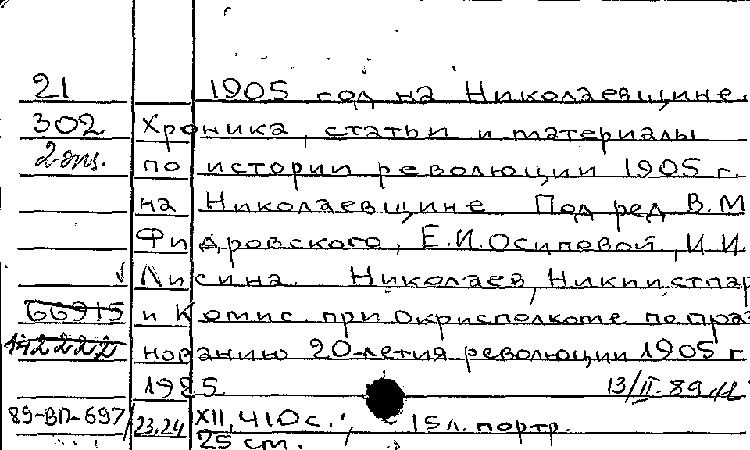 21 1905 год на Николаевщине.
302 Хроника, статьи и материалы
2 экз. по истории революции 1905 г.
на Николаевщине. Под ред. В.М.
Фидровского, Е.И.Осиповой, И.И.
Лисина. Николаев, Никпистпар
66915 и Комис. при Окрисполкоме по праз
142222 нованию 20-летия революции 1905 г
13/II-89
89-ВП-697/23.24 XII, 410 с., 15 л. портр.
25 ст.